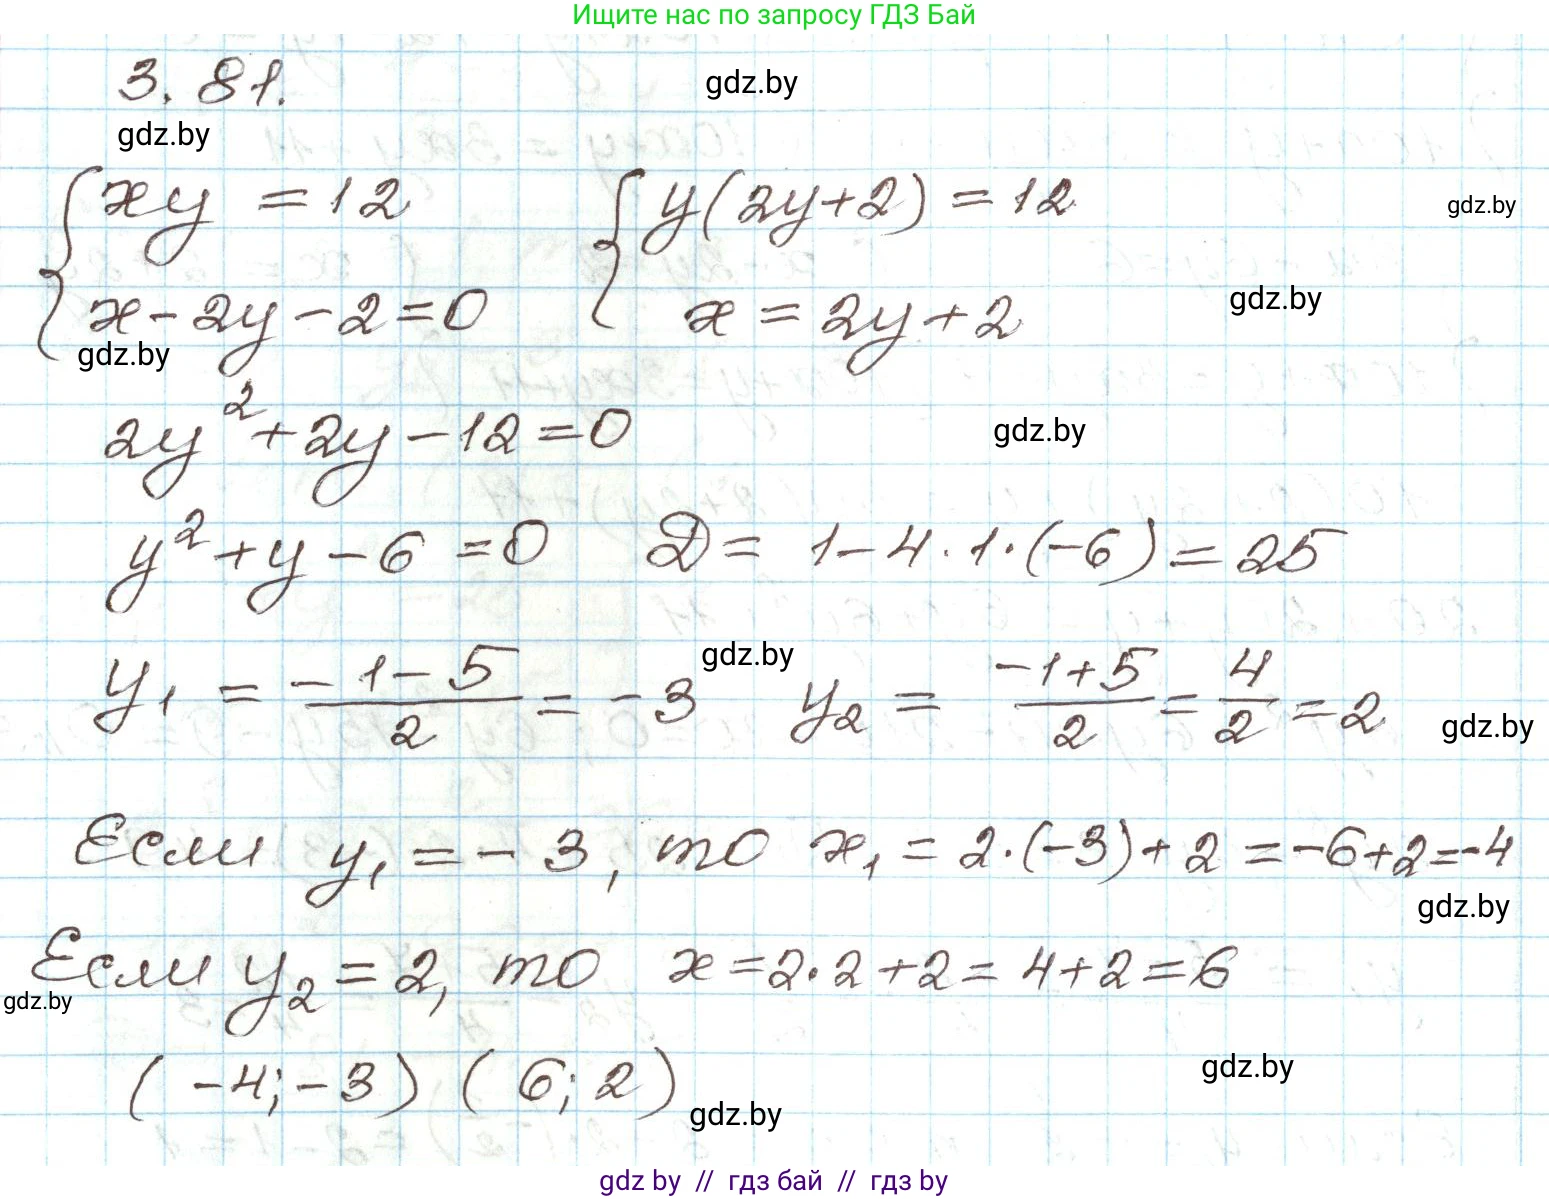 Ищите нас по запросу ГДЗ Бай
3.81.
gdz.by
gdz.by
{ xy = 12 { y(2y+2) = 12
gdz.by
x - 2y - 2 = 0 x = 2y + 2
gdz.by
gdz.by
2y² + 2y - 12 = 0
gdz.by
y² + y - 6 = 0 D = 1 - 4 · 1 · (-6) = 25
gdz.by
y₁ = (-1-5)/2 = -3 y₂ = (-1+5)/2 = 4/2 = 2
gdz.by
Если y₁ = -3, то x₁ = 2·(-3) + 2 = -6+2=-4
gdz.by
Если y₂ = 2, то x = 2·2 + 2 = 4+2 = 6
gdz.by
(-4; -3) (6; 2)
gdz.by
gdz.by
gdz by // гдз бай // гдз by